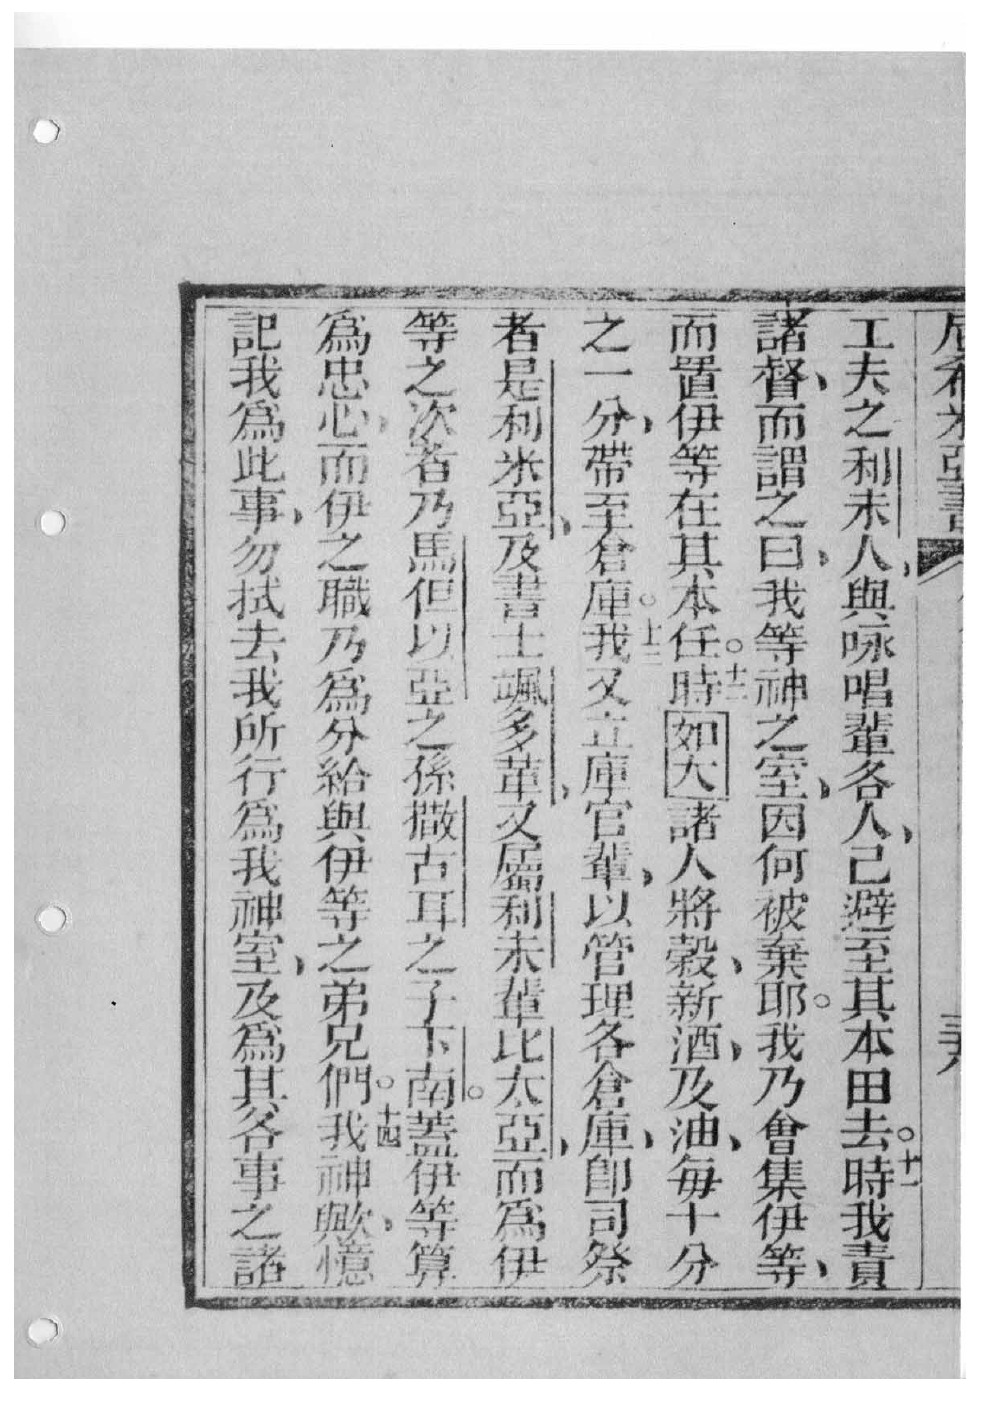 尼希米亞書
三八
工夫之利未人、與咏唱輩各人、己避至其本田去。十一時我責
諸督、而謂之曰、我等神之室、因何被棄耶。我乃會集伊等、
而置伊等在其本任。十二時如大諸人將穀、新酒、及油、每十分
之一分、帶至倉庫。十三我又立庫官輩、以管理各倉庫、卽司祭
者是利米亞、及書士颯多革、又屬利未輩比太亞、而爲伊
等之次者乃馬但以亞之孫撒古耳之子下南。蓋伊等算
爲忠心、而伊之職乃爲分給與伊等之弟兄們。十四我神歟、憶
記我爲此事、勿拭去我所行爲我神室、及爲其各事之諸